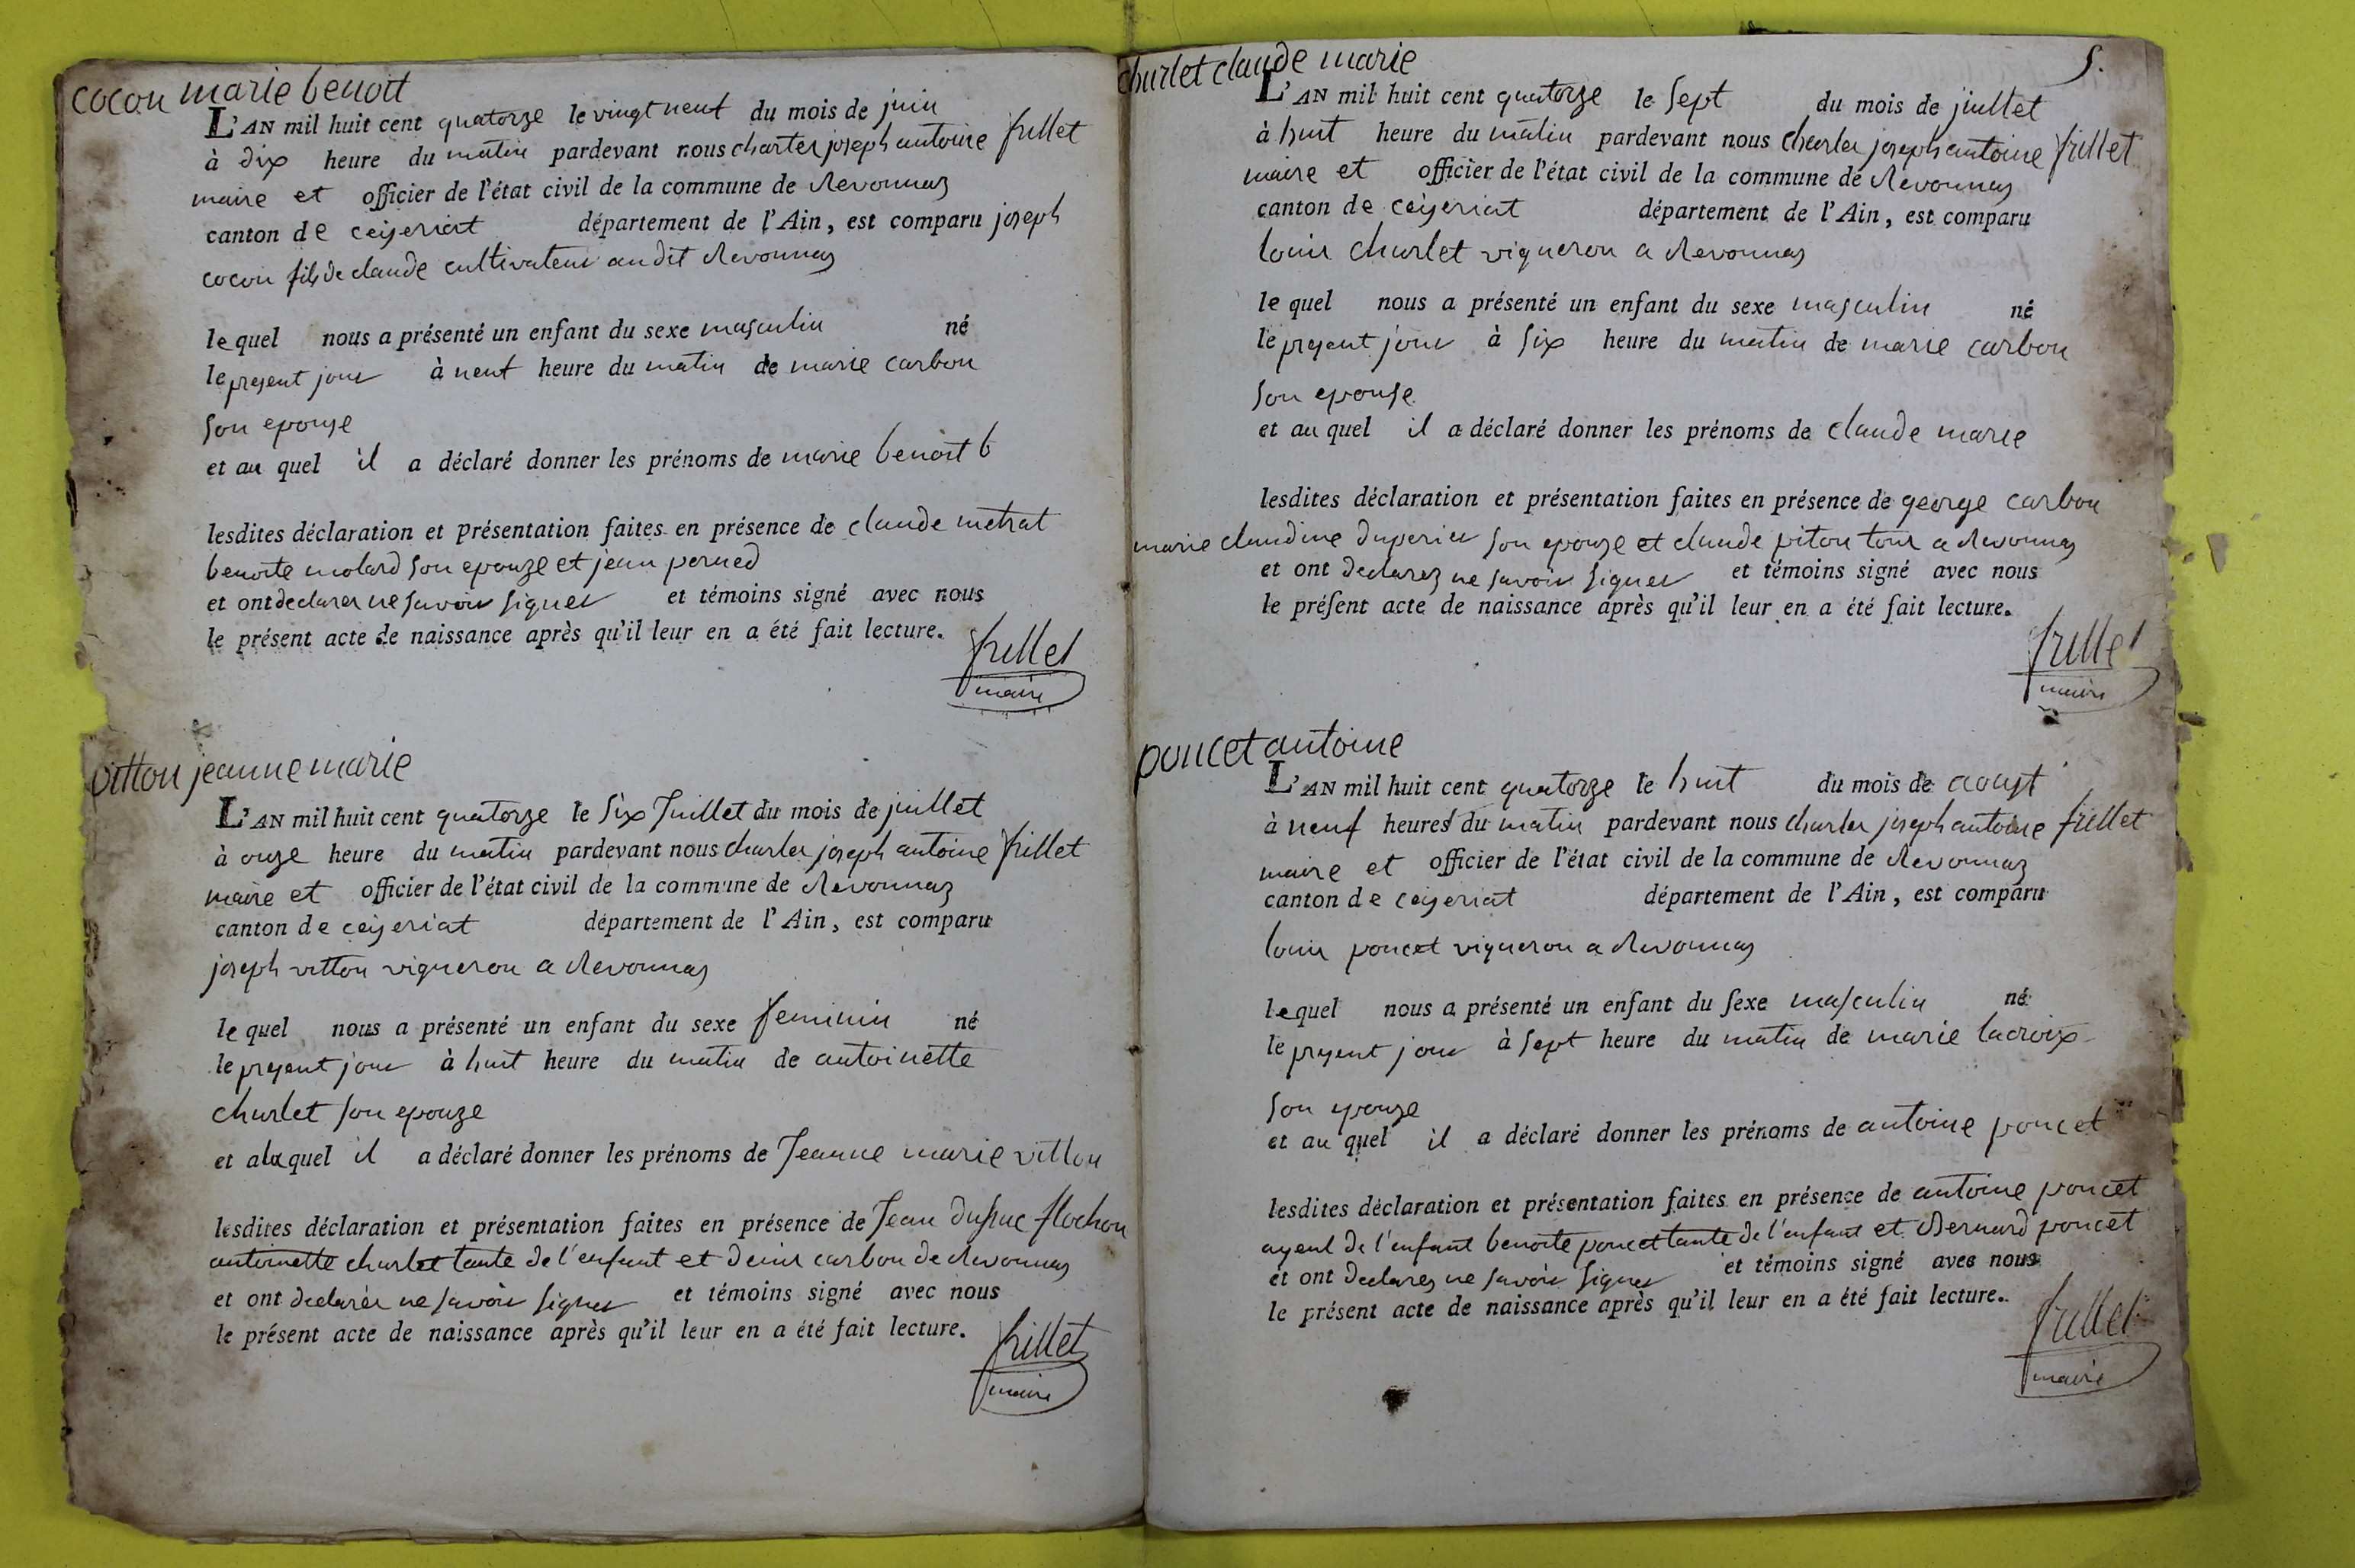 cocon marie benoit
L'AN mil huit cent quatorze le vingt neuf du mois de juin
à dix heure du matin pardevant nous charles joseph antoine frillet
maire et officier de l'état civil de la commune de Revonnas
canton de ceyseriat département de l'Ain, est comparu joseph
cocon fils de claude cultivateur audit Revonnas
lequel nous a présenté un enfant du sexe masculin né
le present jour à neuf heure du matin de marie carbon
son epouse
et au quel il a déclaré donner les prénoms de marie benoit b
lesdites déclaration et présentation faites en présence de claude metrat
benoite molard son epouze et jean perned
et ont declarer ne savoir signer et témoins signé avec nous
le présent acte de naissance après qu'il leur en a été fait lecture.
frillet
maire
vitton jeanne marie
L'AN mil huit cent quatorze le six Juillet du mois de juillet
à onze heure du matin pardevant nous charles joseph antoine frillet
maire et officier de l'état civil de la commune de Revonnas
canton de ceyseriat département de l'Ain, est comparu
joseph vitton vigneron a Revonnas
lequel nous a présenté un enfant du sexe feminin né
le present jour à huit heure du matin de antoinette
charlet son epouze
et alaquel il a déclaré donner les prénoms de Jeanne marie vitton
lesdites déclaration et présentation faites en présence de Jean flochon
antoinette charlet tante de l'enfant et denis carbon de Revonnas
et ont declarér ne savoir signer et témoins signé avec nous
le présent acte de naissance après qu'il leur en a été fait lecture.
frillet
maire
5.
charlet claude marie
L'AN mil huit cent quatorze le sept du mois de juillet
à huit heure du matin pardevant nous charles joseph antoine frillet
maire et officier de l'état civil de la commune de Revonnas
canton de ceyseriat département de l'Ain, est comparu
louis charlet vigneron a Revonnas
lequel nous a présenté un enfant du sexe masculin né
le present jour à six heure du matin de marie carbon
son epouse
et au quel il a déclaré donner les prénoms de claude marie
lesdites déclaration et présentation faites en présence de george carbon
marie claudine duperier son epouze et claude piton tous a Revonnas
et ont declarez ne savoir signer et témoins signé avec nous
le préſent acte de naissance après qu'il leur en a été fait lecture.
frillet
maire
poncet antoine
L'AN mil huit cent quatorze le huit du mois de aoust
à neuf heures du matin pardevant nous charles joseph antoine frillet
maire et officier de l'état civil de la commune de Revonnas
canton de ceyseriat département de l'Ain, est comparu
louis poncet vigneron a Revonnas
lequel nous a présenté un enfant du ſexe masculin né
le present jour à sept heure du matin de marie lacroix
son epouze
et au quel il a déclaré donner les prénoms de antoine poncet
lesdites déclaration et présentation faites en présence de antoine poncet
ayeul de l'enfant benoite poncet tante de l'enfant et Bernard poncet
et ont declarez ne savoir signer et témoins signé avec nous
le présent acte de naissance après qu'il leur en a été fait lecture.
frillet
maire